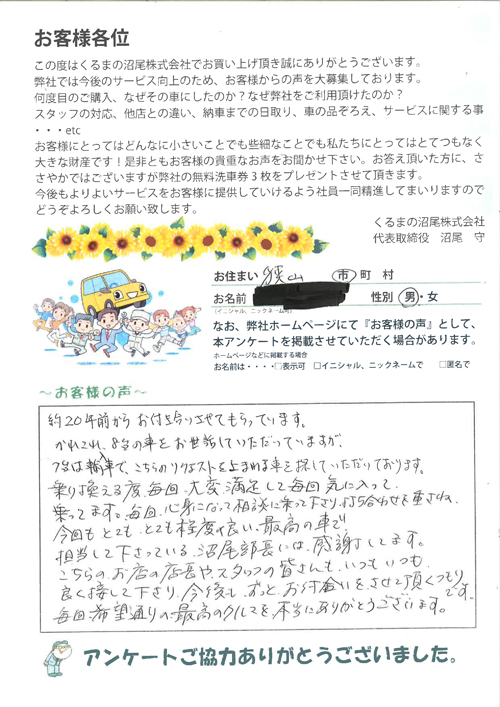 お客様各位
この度はくるまの沼尾株式会社でお買い上げ頂き誠にありがとうございます。
弊社では今後のサービス向上のため、お客様からの声を大募集しております。
何度目のご購入、なぜその車にしたのか？なぜ弊社をご利用頂けたのか？
スタッフの対応、他店との違い、納車までの日取り、車の品ぞろえ、サービスに関する事
・・・etc
お客様にとってはどんなに小さいことでも些細なことでも私たちにとってはとてつもなく
大きな財産です！是非ともお客様の貴重なお声をお聞かせ下さい。お答え頂いた方に、さ
さやかではございますが弊社の無料洗車券３枚をプレゼントさせて頂きます。
今後もよりよいサービスをお客様に提供していけるよう社員一同精進してまいりますので
どうぞよろしくお願い致します。
くるまの沼尾株式会社
代表取締役　沼尾　守
お住まい 狭山 市 町 村
お名前 性別 男・女
(イニシャル、ニックネーム可)
なお、弊社ホームページにて『お客様の声』として、
本アンケートを掲載させていただく場合があります。
ホームページなどに掲載する場合
お名前は・・・・□表示可 □イニシャル、ニックネームで □匿名で
～お客様の声～
約20年前からお付き合いさせてもらっています。
かれこれ、8台の車をお世話していただいていますが、
7台は輸入車で、こちらのリクエストを上まわる車を探していただいております。
乗り換える度、毎回、大変、満足して毎回気に入って、
乗ってます。毎回、心身になって相談に乗って下さり、打ち合わせを重ねられ、
今回もとても、とても程度の良い、最高の車で!!
担当して下さっている、沼尾部長には、感謝してます。
こちらのお店の店長や、スタッフの皆さんも、いつも、いつも、
良く接して下さり、今後も、ずっと、お付き合いを、させて頂くつもりです。
毎回、希望通りの、最高のクルマを、本当にありがとうございます。
アンケートご協力ありがとうございました。